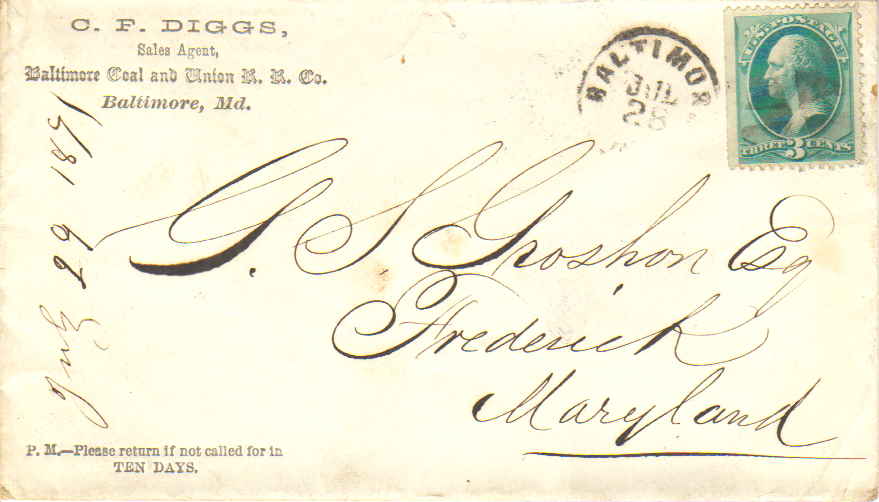 C. F. DIGGS,
Sales Agent,
Baltimore Coal and Union R. R. Co.
Baltimore, Md.
BALTIMOR
JUL
28
U.S. POSTAGE
THREE 3 CENTS
July 29 1871
G. S. Groshon Esq
Frederick
Maryland
P. M.—Please return if not called for in
TEN DAYS.